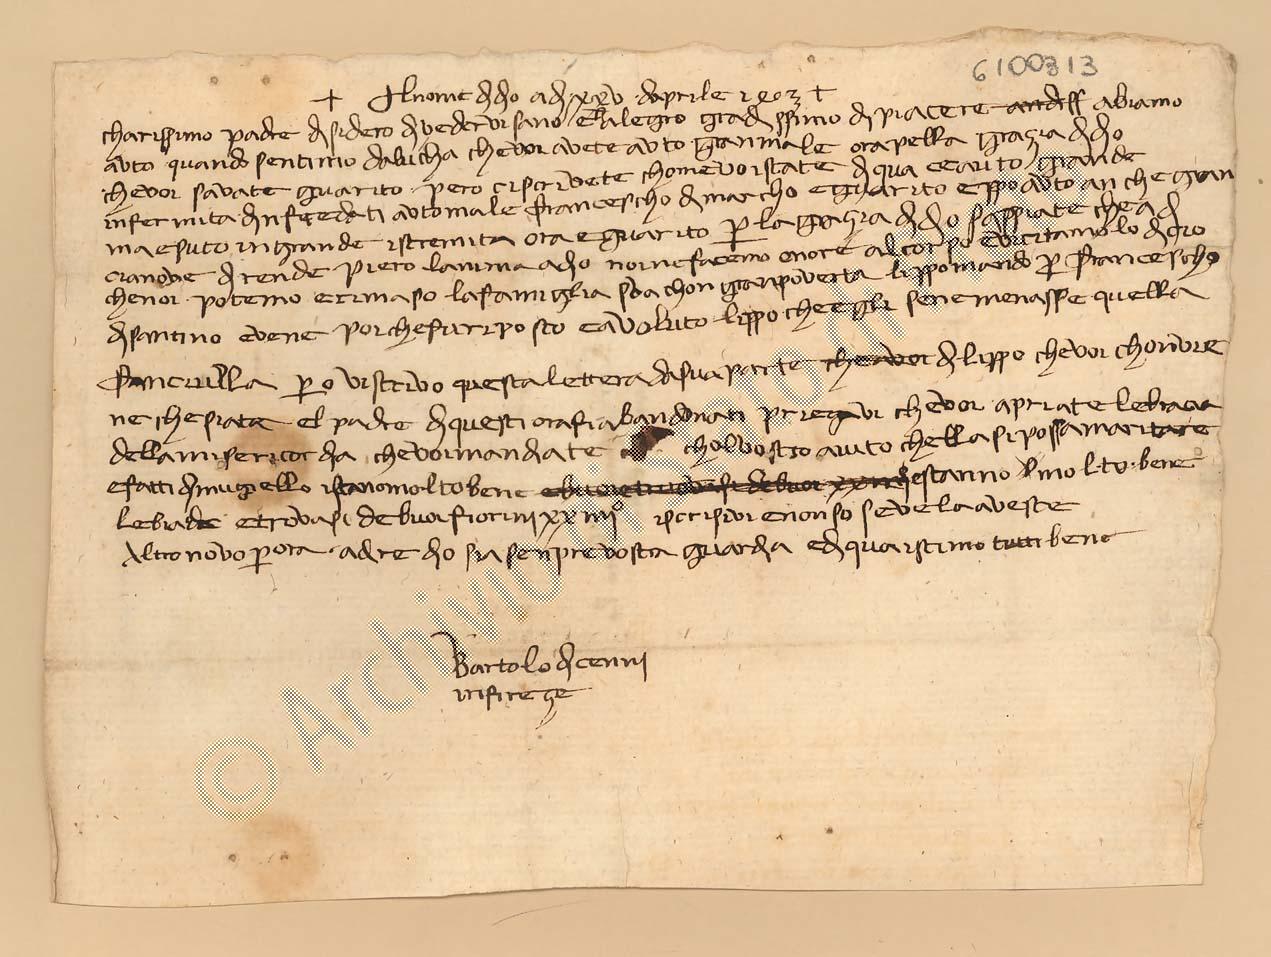 6100313
+ Al nome di dio adi xxv daprile 1403 +
charissimo padre disidero di vedervi sano e alegro grandissimo dipiacere abiamo
auto quando sentimo dalucha che voi avete auto gran male ora pella grazia di dio
che voi savate guarito pero ci scrivete chome voi istate di qua ce auto grande
infermita auto male francescho di marcho e guarito e ppo auto anche gran
ma e suto in grande istremita ora e guarito per la grazia di dio sappiate che a di
rende pieto lanima a dio noi ne facemo onore al corpo
che noi potemo e rimaso la famiglia sua chon gran poverta lippo mando per francescho
di santino e vene por che fu riposto e a voluto lippo che egli sene menasse quella
fanciulla per o vi scrivo questa lettera da sua parte di lippo che voi
ne che siate el padre di questi orafi abandonati priegovi che voi apriate le bracia
della misericordia che voi mandiate chol vostro aiuto chella si possa maritare
e fatti di mugiello istano molto bene e stanno molto bene
le biade e trovasi de buoi fiorini xxiiiio iscrissivi e non so se ve la aveste
Altro no vo per ora a dire dio sia senpre vostra guardia e di qua istimo tutti bene
Bartolo di cenni
in firenze
© Archivio di Stato di Prato